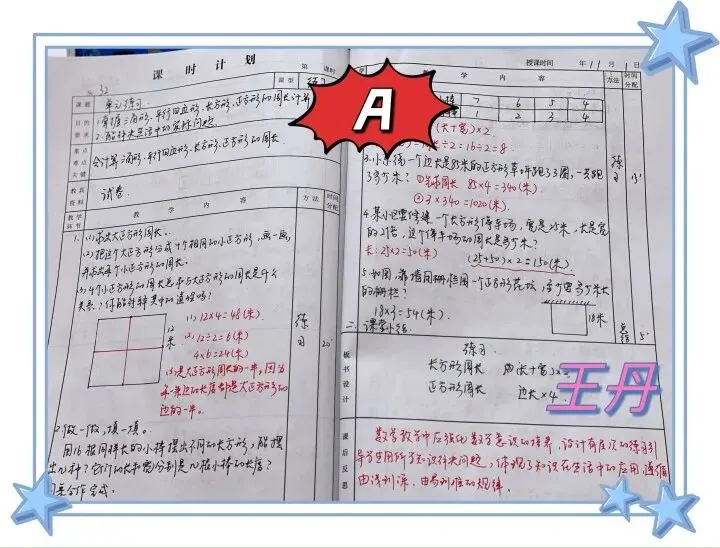 课时计划
第 课时
32
课题
单元练习.
课型
练习
目的
要求
1.掌握三角形、平行四边形、长方形、正方形的周长计算
2.解决生活中的实际问题
重点
难点
关键
会计算三角形、平行四边形、长方形、正方形的周长.
教具
资料
试卷.
教学
环节
教学内容
方法
时间
分配
1.(1)求出大正方形周长.
(2)把这个大正方形分成4个相同的小正方形,画一画,
并求出每个小正方形的周长.
(3)4个小正方形的周长总和与大正方形的周长是什么
关系?你能解释其中的道理吗?
12米
(1) 12×4=48(米)
(2) 12÷2=6(米)
4×6=24(米)
(3)是大正方形周长的一半,因为
每一条边的长度都是大正方形的
边的一半.
练习
20'
2.做一做,填一填。
用16根同样长的小棒摆出不同的长方形,能摆
出几种?它们的长和宽分别是几根小棒的长度?
同桌合作完成.
授课时间 年 11 月 1 日
学内容
方法
时间
分配
7 6 5 4
1 2 3 4
(长+宽)×2
÷2=16÷2=8.
3.小东绕一个边长是85米的正方形草坪跑3圈,一共跑
了多少米?
①先求周长 85×4=340(米)
②3×340=1020(米).
4.某小区要修建一个长方形停车场,宽是25米,长是宽
的2倍,这个停车场的周长是多少米?
长:25×2=50(米)
(25+50)×2=150(米).
5.如图,靠墙用栅栏围一个正方形花坛,需多少米长
的栅栏?
18×3=54(米)
18米
练习
15'
二.
课堂小结.
总结
5'
板书设计
练习
长方形周长 (长+宽)×2
正方形周长 边长×4
课后反思
数学教学中应强化数学意识的培养,设计有层次的练习引
导学生用所学知识解决问题,体现了知识在生活中的应用,遵循
由浅到深、由易到难的规律.
A
王丹